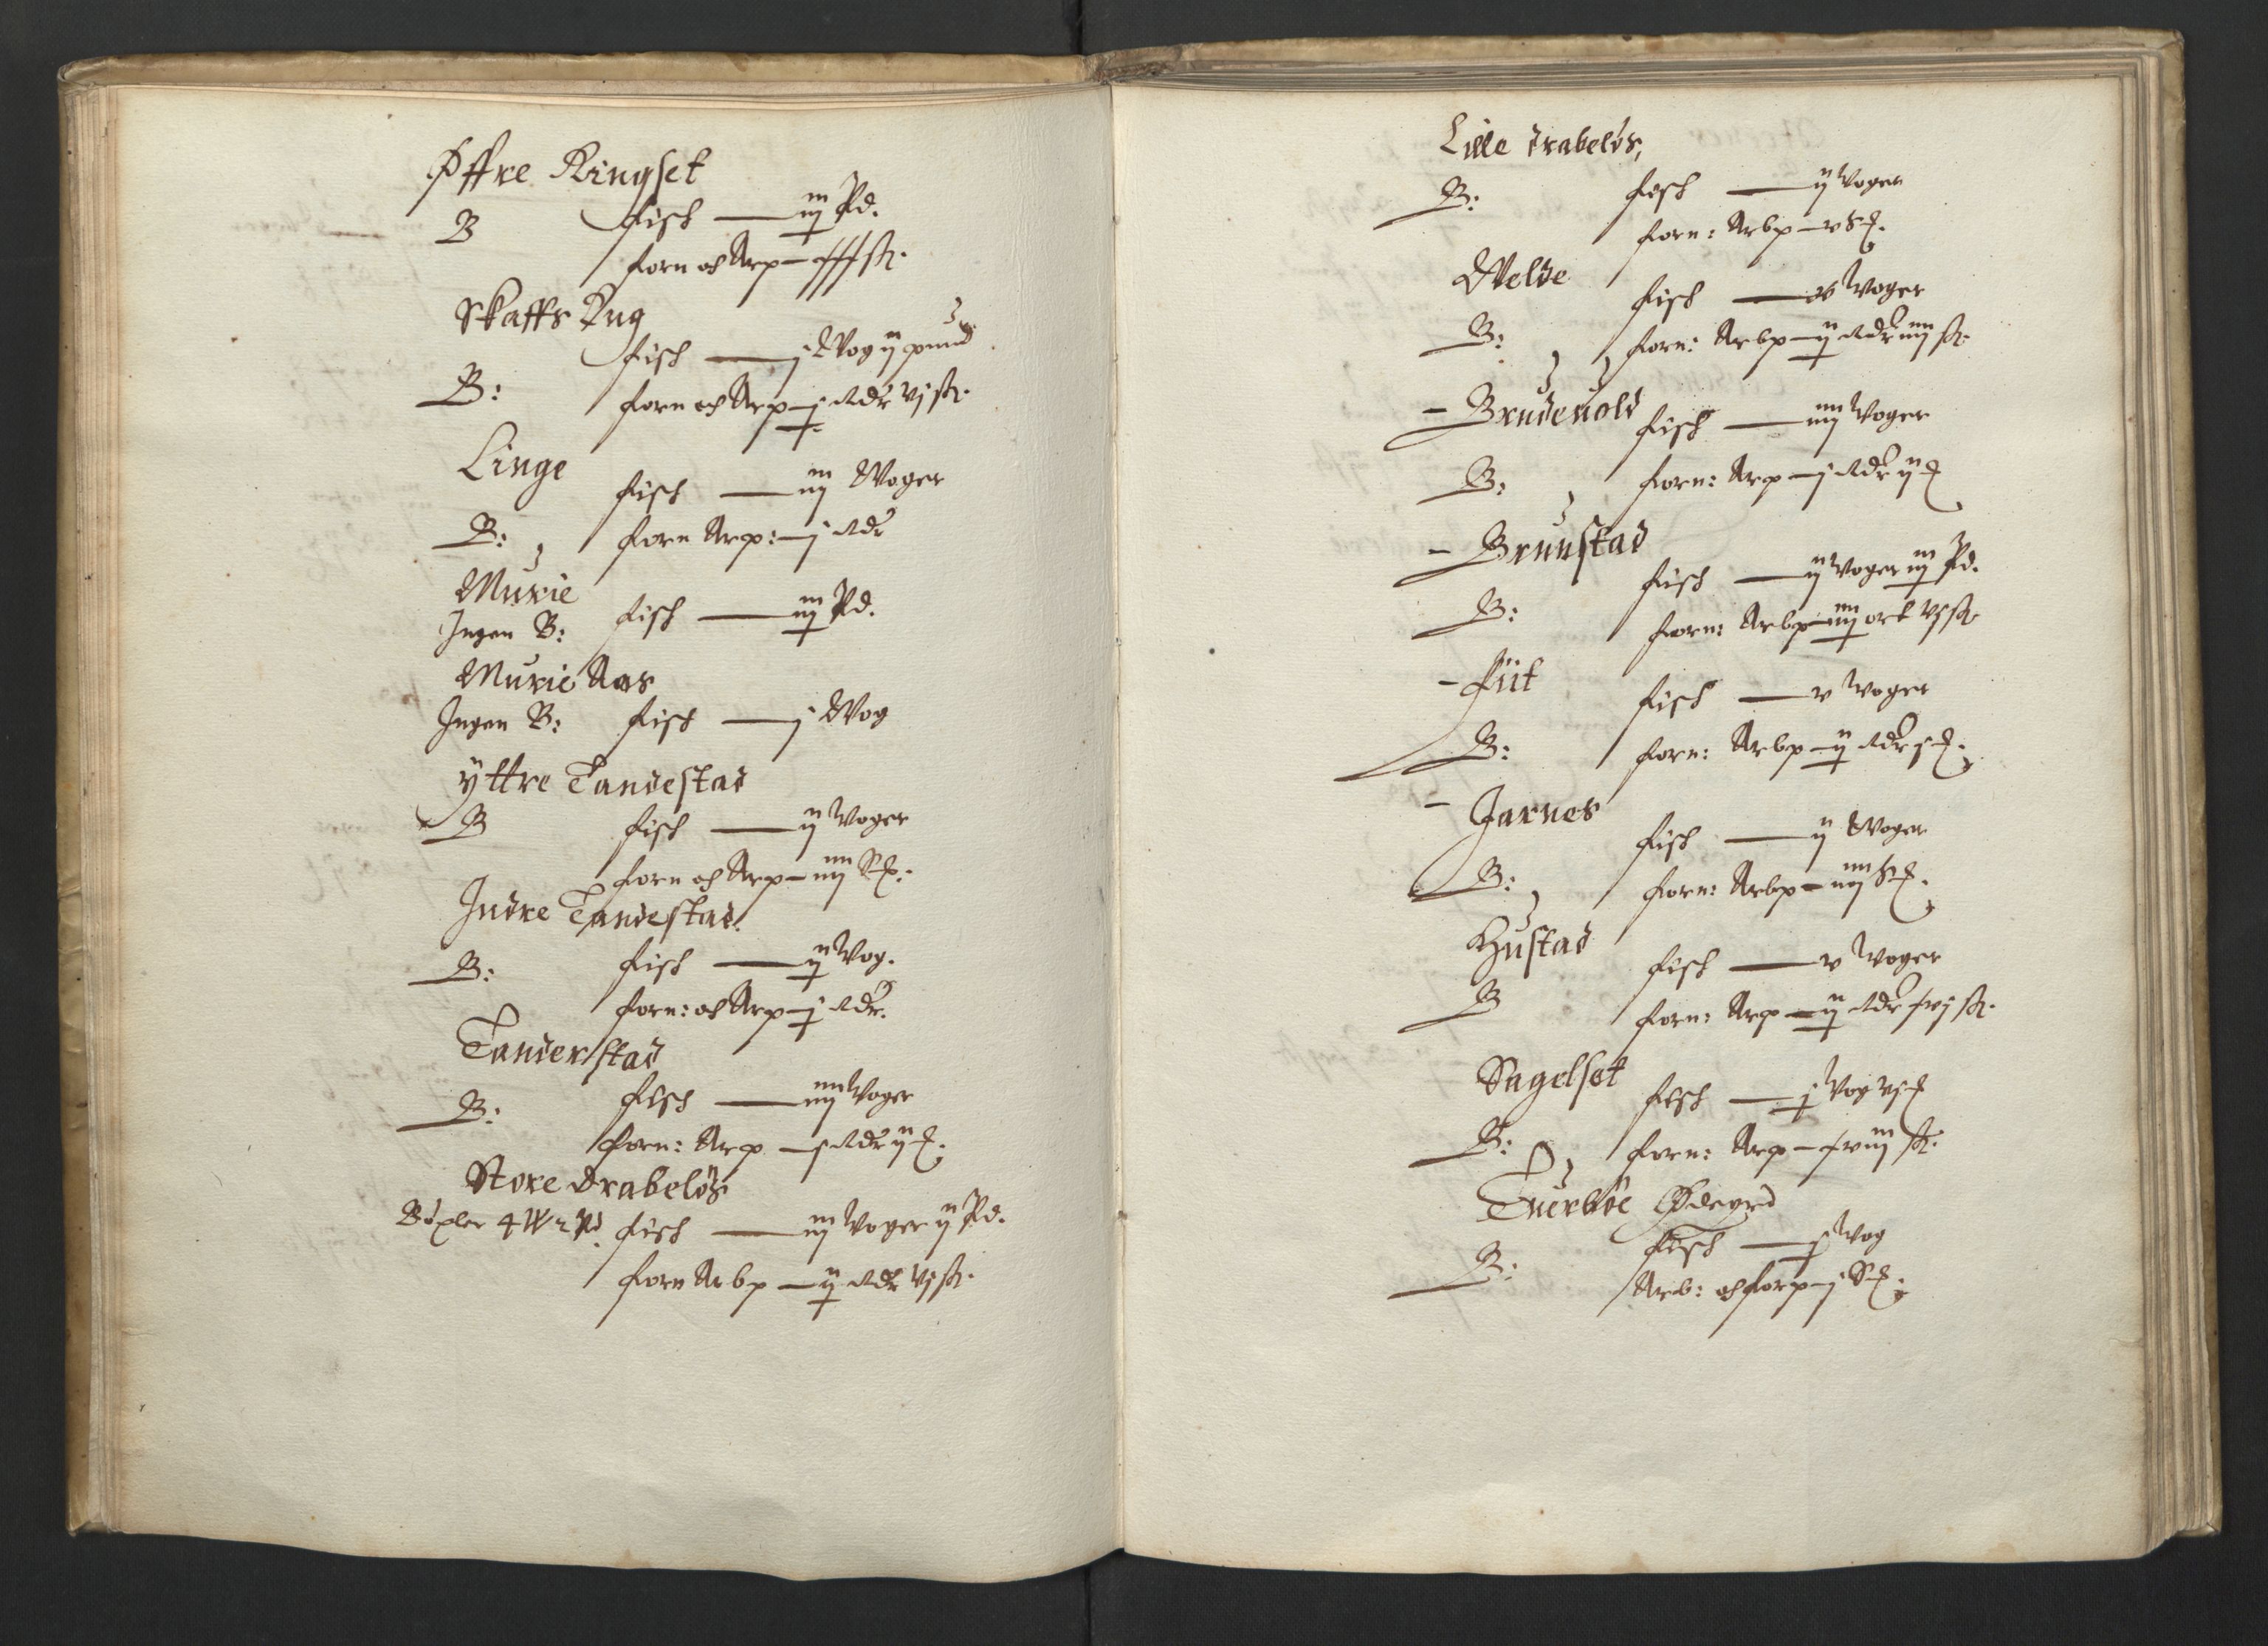 Øffre Ringset
B fisch — iij Pd.
forn och Arp — xxx sk.
Skaffs Rug
fisch — j Wog ij pund
B: forn och Arp — j Rdr vj sk.
Linge
fisch — iij Woger
B: forn Arp: — j Rdr
Murie
Ingen B: fisch — iij Pd.
Murie Aas
Ingen B: fisch — j Wog
ÿttre Tandestad
B fisch — ij Woger
forn och Arp — iiij
Indre Tandestad.
B: fisch — ij Wog.
forn: och Arp — j Rdr.
Tanderstad
B: fisch — iiij Woger
forn: Arp — j Rdr ij
Store Drabeløs
Bøxler 4 W 2 Pd. fisch — iij Woger ij Pd.
forn Arbp — ij Rdr vj sk.
Lille drabeløs,
B: fisch — ij Woger
forn: Arbp — v
Welde
fisch — Woger
B: forn: Arbp — ij Rdr iiij sk.
– Brudeuold fisch — iiij Woger
B: forn: Arp — j Rdr ij
– Brunstad
fisch — ij Woger iij Pd.
B: forn: Arbp — iiij ort vj sk.
– fiit
fisch — v Woger
B: forn: Arbp — ij Rdr j
– Jarnes
fisch — ij Woger
B: forn: Arbp — iiij
Hustad
fisch — v Woger
B forn: Arp — ij Rdr xvj sk.
Sagelset
fisch — j Wog
B: forn: Arp — xviij sk.
Tuerbøe Ødegrd
fisch — j Wog
B: Arb: och forp — j